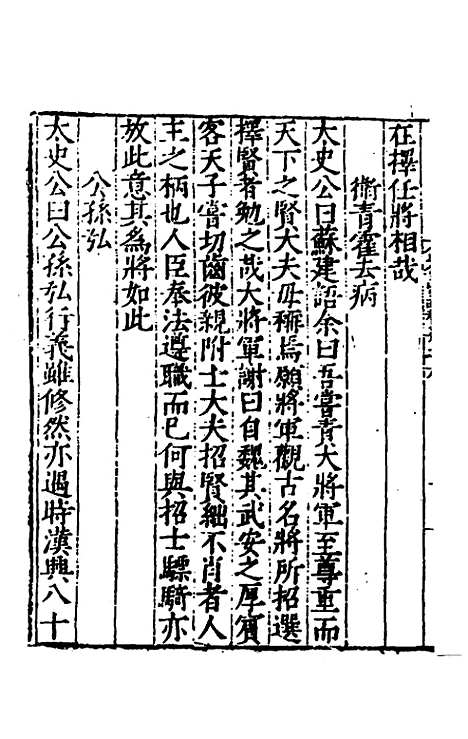 在擇任將相哉
衛青霍去病
太史公曰蘇建語余曰吾嘗責大將軍至尊重而
天下之賢大夫毋稱焉願將軍觀古名將所招選
擇賢者勉之哉大將軍謝曰自魏其武安之厚賓
客天子嘗切齒彼親附士大夫招賢絀不肖者人
主之柄也人臣奉法遵職而已何與招士驃騎亦
放此意其為將如此
公孫弘
太史公曰公孫弘行義雖修然亦遇時漢興八十